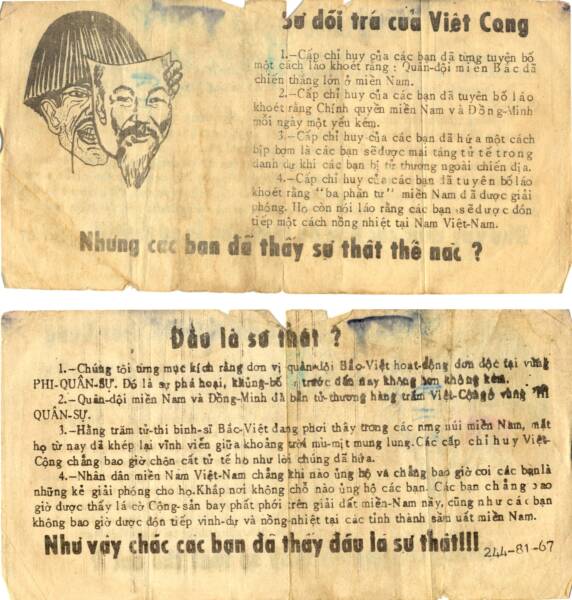 Sự dối trá của Việt Cọng
1.-Cấp chỉ huy của các bạn đã từng tuyện bố
một cách láo khoét rằng : Quân-dội miền Bắc dã
chiến thắng lớn ở miền Nam.
2.-Cấp chỉ huy của các bạn dã tuyên bố láo
khoét rằng Chính quyền miền Nam và Đồng-Minh
mỗi ngày một yếu kém.
3.-Cấp chỉ huy của các bạn dã hứa một cách
bịp bợm là các bạn sẽ dược mai táng tử tế trong
danh dự khi các bạn bị tử thương ngoài chiến địa.
4.-Cấp chỉ huy của các bạn dã tuyên bố láo
khoét rằng "ba phần tư" miền Nam dã dược giải
phóng. Họ còn nói láo rằng các bạn sẽ dược dón
tiếp một cách nồng nhiệt tại Nam Việt-Nam.
Nhưng các bạn đã thấy sự thật thế nào ?
Đâu là sự thật ?
1.-Chúng tôi từng mục kích rằng dơn vị quân-dội Bắc-Việt hoạt-dộng dơn dộc tại vùng
PHI-QUÂN-SỰ. Đó là sự phá hoại, khủng-bố trước dến nay không hơn không kém.
2.-Quân-dội miền Nam và Đồng-Minh dã bắn tử-thương hàng trăm Việt-Cộng ở vùng PHI
QUÂN-SỰ.
3.-Hằng trăm tử-thi binh-sĩ Bắc-Việt dang phơi thây trong các rừng núi miền Nam, mắt
họ từ nay dã khép lại vĩnh viễn giữa khoảng trời mù-mịt mung lung. Các cấp chỉ huy Việt-
Cộng chẳng bao giờ chọn cất tử tế họ như lời chúng dã hứa.
4.-Nhân dân miền Nam Việt-Nam chẳng khi nào ủng hộ và chẳng bao giờ coi các bạn là
những kẻ giải phóng cho họ. Khắp nơi không chỗ nào ủng hộ các bạn. Các bạn chẳng bao
giờ dược thấy lá cờ Cộng-sản bay phất phới trên giải dất miền-Nam này, cũng như các bạn
không bao giờ dược dón tiếp vinh-dự và nồng-nhiệt tại các tỉnh thành sầm uất miền Nam.
Như vậy chắc các bạn đã thấy đâu là sự thật!!!
244-81-67